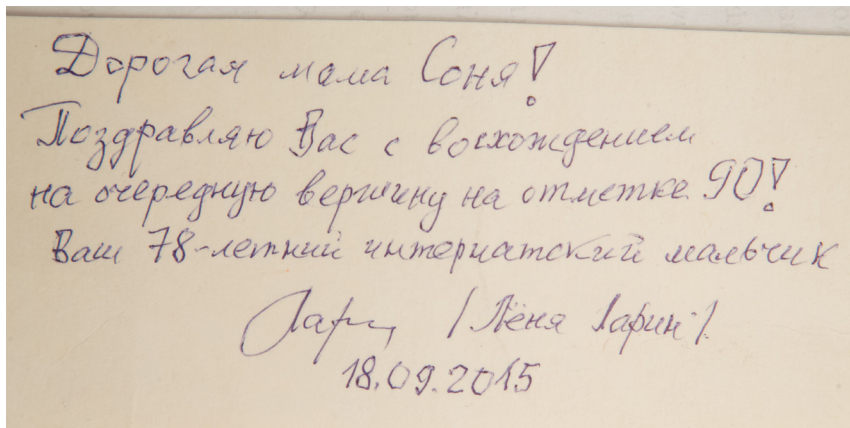 Дорогая мама Соня!
Поздравляю Вас с восхождением
на очередную вершину на отметке 90!
Ваш 78-летний интернатский мальчик
Ларин /Лёня Ларин/.
18.09.2015